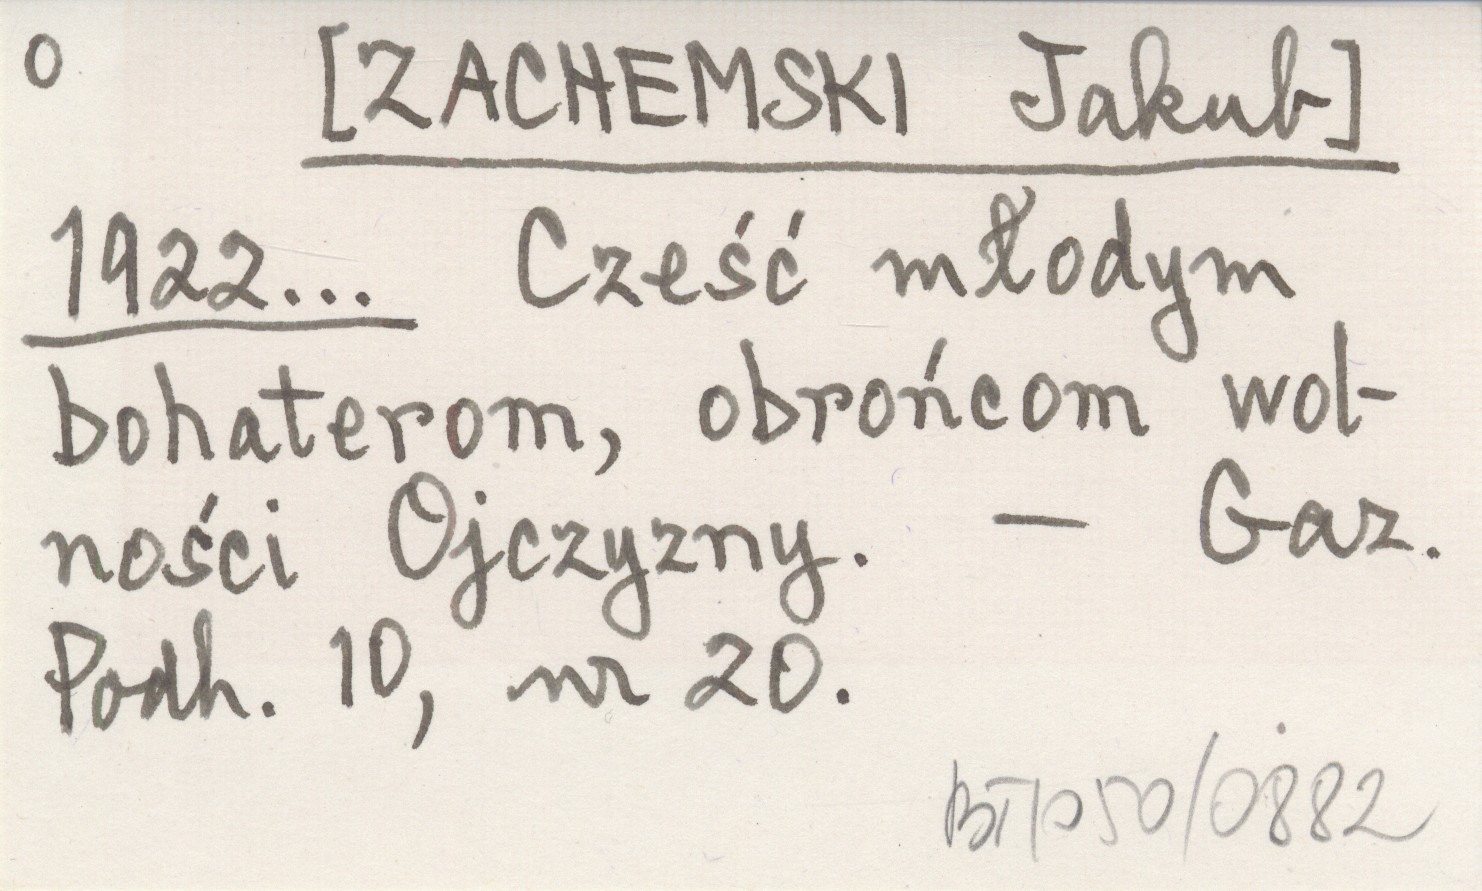 0 [ZACHEMSKI Jakub]
1922... Cześć młodym
bohaterom, obrońcom wol-
ności Ojczyzny. — Gaz.
Podh. 10, nr 20.
BTP50/0882